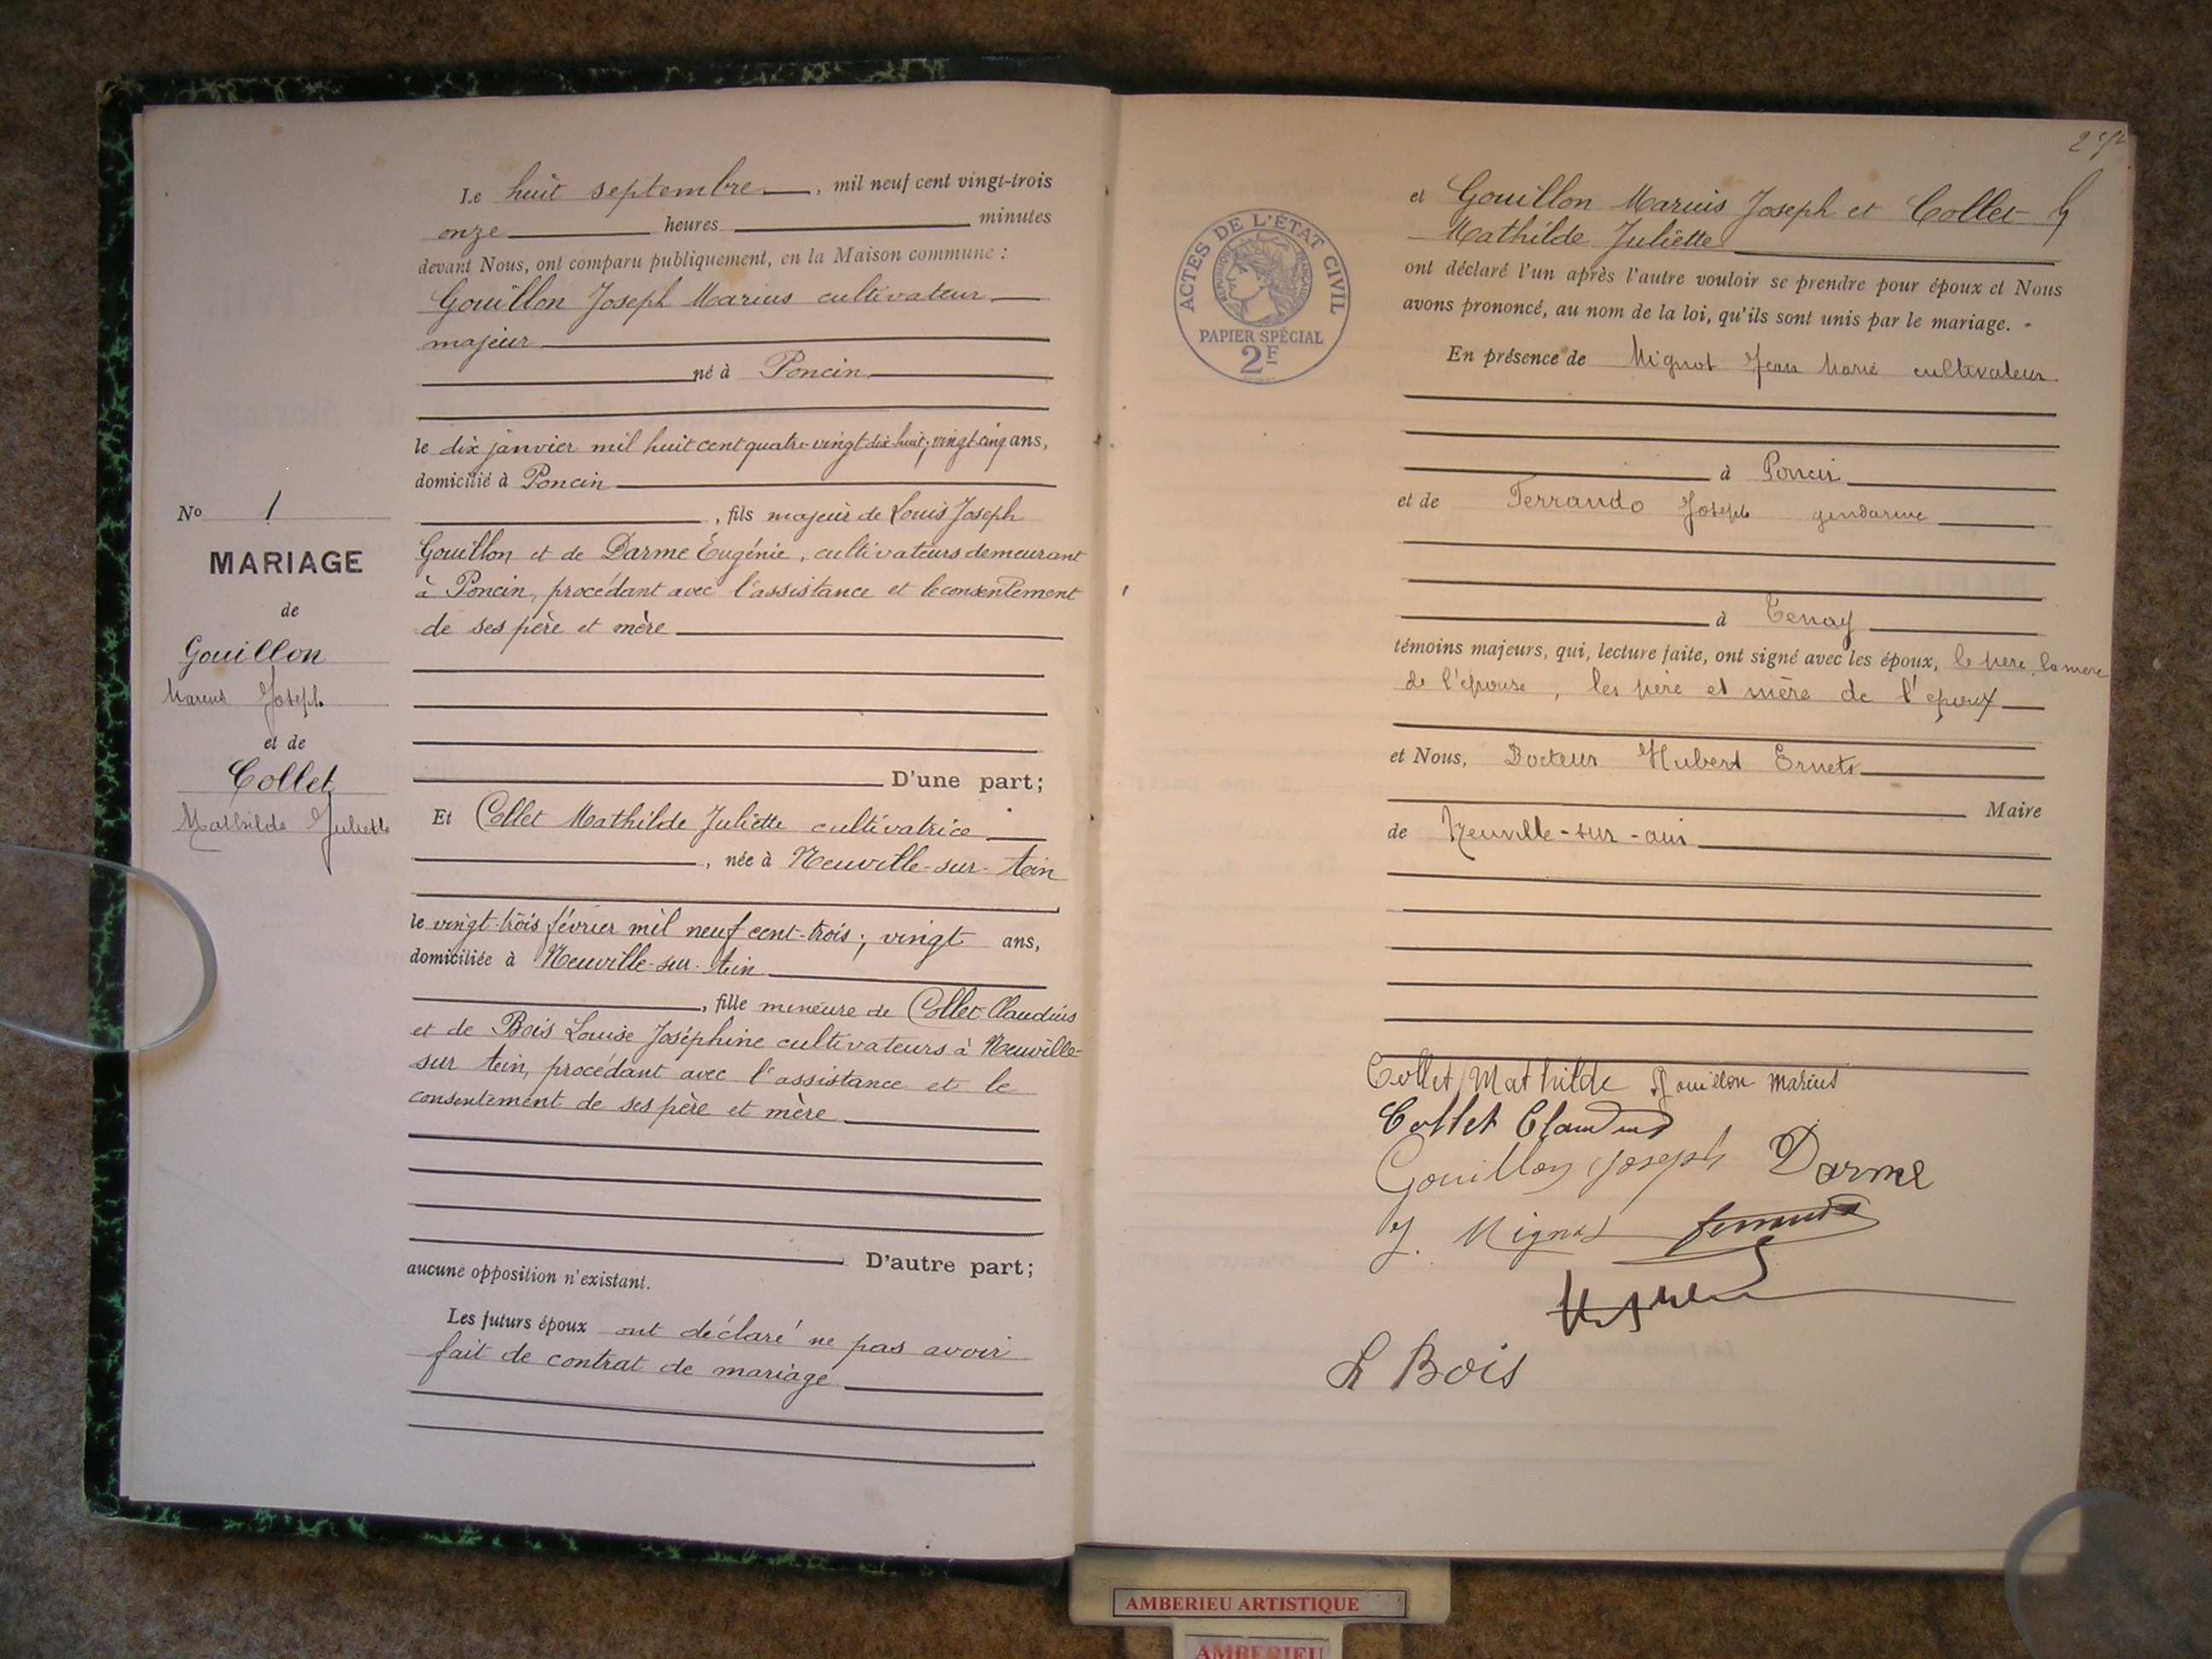 Le huit septembre, mil neuf cent vingt-trois
onze heures minutes
devant Nous, ont comparu publiquement, en la Maison commune :
Gouillon Joseph Marius cultivateur
majeur
né à Poncin
le dix janvier mil huit cent quatre-vingt dix huit; vingt cinq ans,
domicilié à Poncin
, fils majeur de Louis Joseph
Gouillon et de Darme Eugénie, cultivateurs demeurant
à Poncin, procédant avec l'assistance et le consentement
de ses père et mère
D'une part;
Et Collet Mathilde Juliette cultivatrice
, née à Neuville-sur-Ain
le vingt-trois février mil neuf cent-trois; vingt ans,
domiciliée à Neuville-sur-Ain
, fille mineure de Collet Claudius
et de Bois Louise Joséphine cultivateurs à Neuville-
sur Ain, procédant avec l'assistance et le
consentement de ses père et mère
D'autre part;
aucune opposition n'existant.
Les futurs époux ont déclaré ne pas avoir
fait de contrat de mariage
No 1
MARIAGE
de
Gouillon
Marius Joseph
et de
Collet
Mathilde Juliette
ACTES DE L'ÉTAT CIVIL
RÉPUBLIQUE FRANÇAISE
PAPIER SPÉCIAL
2F
et Gouillon Marius Joseph et Collet
Mathilde Juliette
ont déclaré l'un après l'autre vouloir se prendre pour époux et Nous
avons prononcé, au nom de la loi, qu'ils sont unis par le mariage.
En présence de Mignot Jean Marie cultivateur
à Poncin
et de Ferrando Joseph gendarme
à Tenay
témoins majeurs, qui, lecture faite, ont signé avec les époux, le père, la mère
de l'épouse, les père et mère de l'époux
et Nous, Docteur Hubert Ernets
Maire
de Neuville-sur-ain
Collet Mathilde Gouillon Marius
Collet Claudius
Gouillon Joseph Darme
J. Mignot
L Bois
AMBERIEU ARTISTIQUE
AMBERIEU